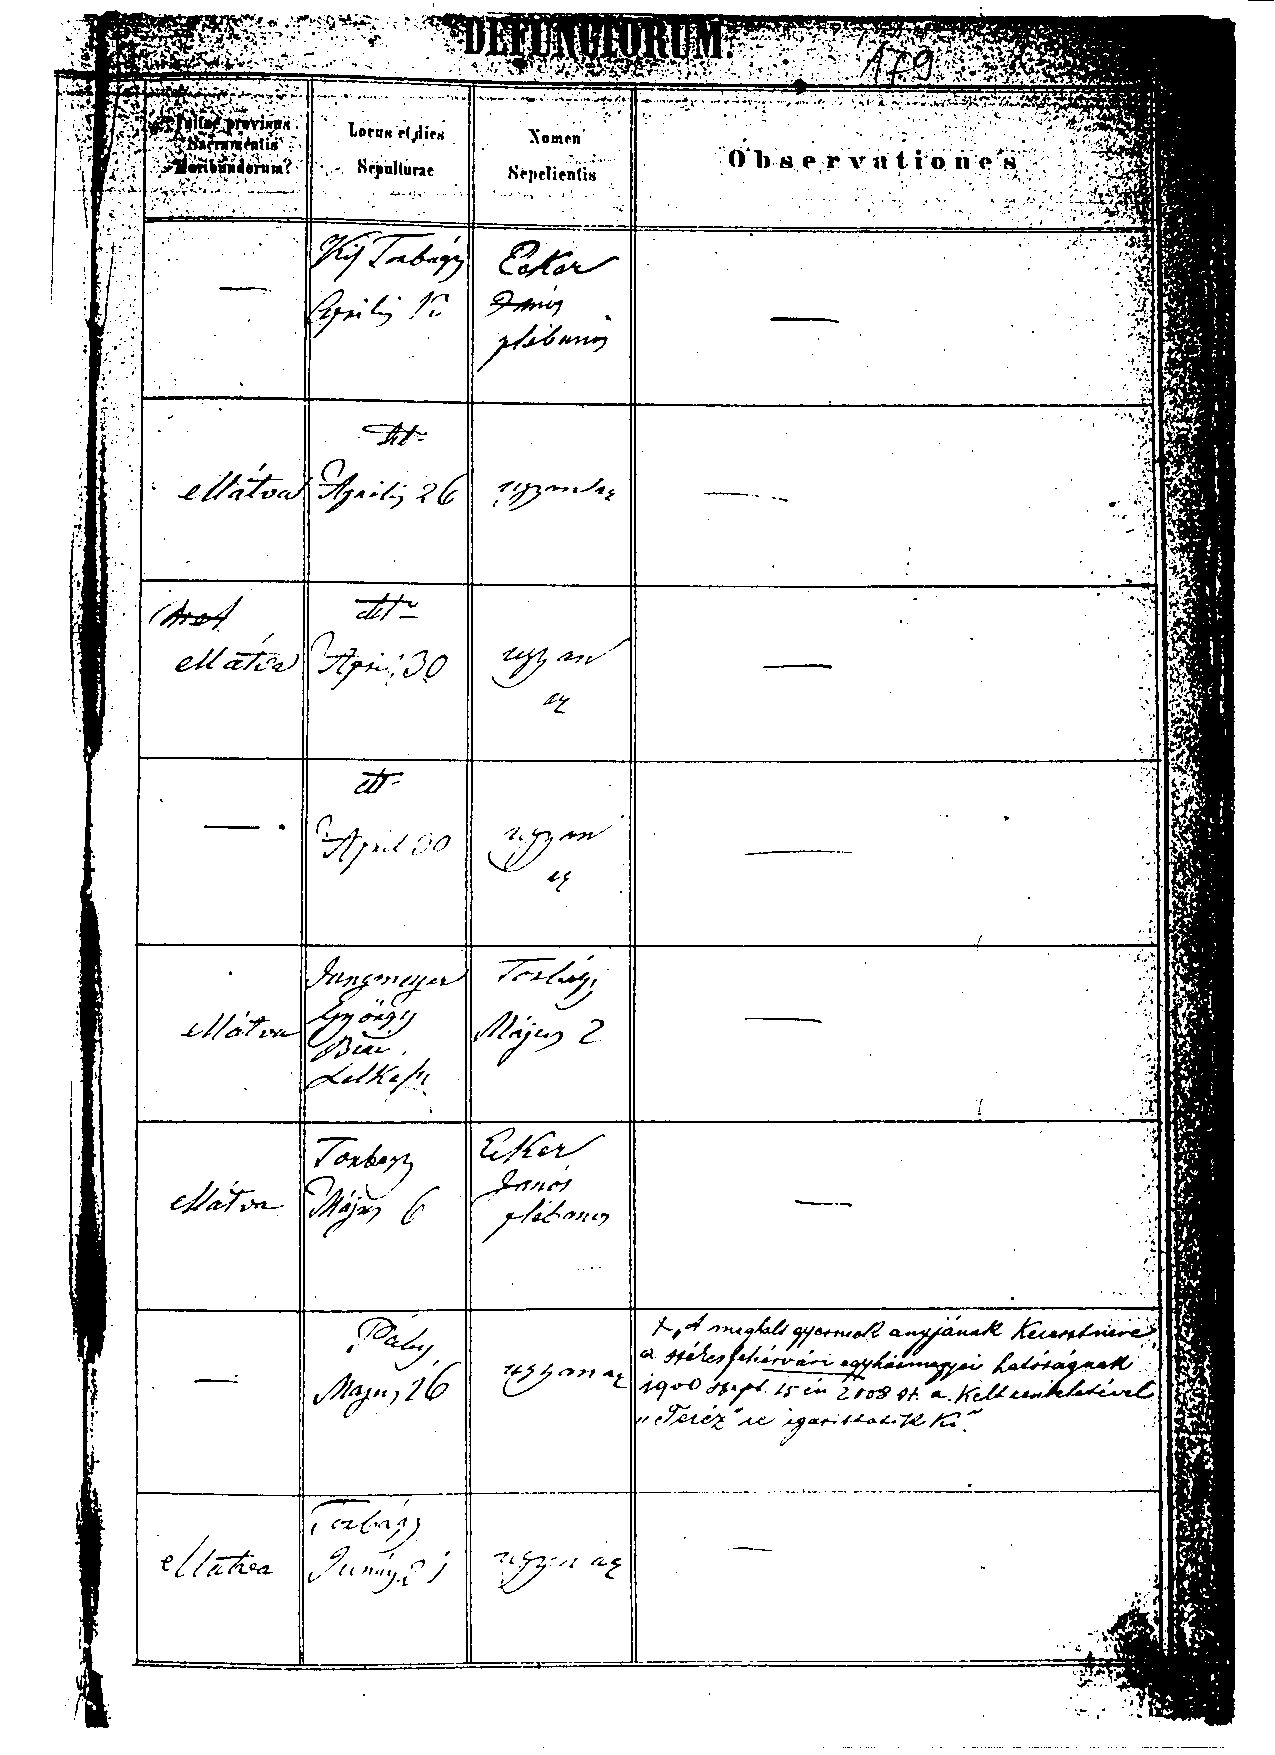 DEFUNCTORUM.
179
Fuitne provisus
Sacramentis
Moribundorum?
Locus et dies
Sepulturae
Nomen
Sepelientis
Observationes
Torbágy
Április
Ecker
János
plébános
dtt
ellátva
Április 26
ugyanaz
dtt
ellátva
Ápril 30
ugyan
az
dtt
Ápril 30
ugyan
az
ellátva
Jungmeyer
György
Biai
Lelkész
Torbágy
Május 2
ellátva
Torbágy
Május 6
Ecker
János
plébános
Páty
Május 26
ugyanaz
"A meghalt gyermek anyjának keresztneve
a székesfehérvári egyházmegyei hatóságnak
1900 szept. 15 én 2008 sz. a. kelt rendeletével
"Teréz" re igazittatik ki."
ellátva
Torbágy
Június 21
ugyanaz